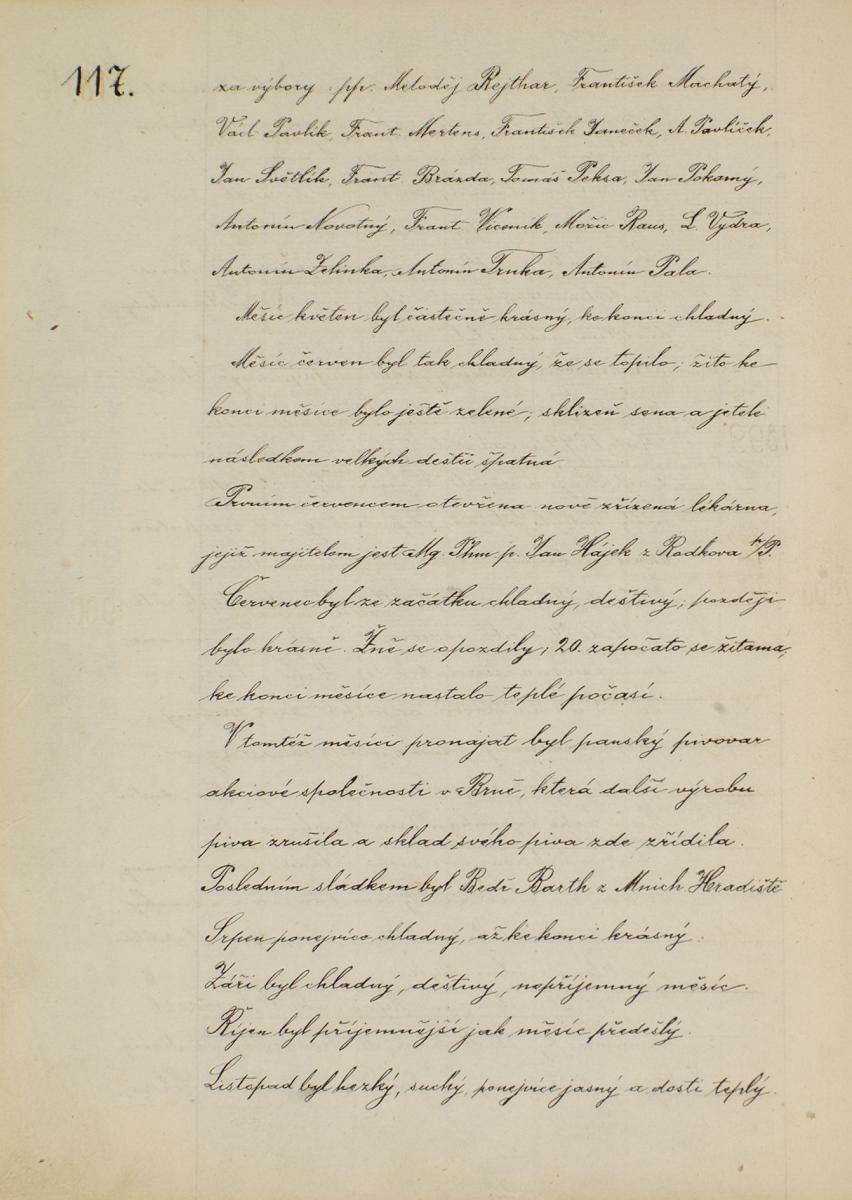 117.
za výbory pp. Metoděj Rejthar, František Machatý,
Václ Pavlík, Frant. Mertens, František Janeček, A. Pavlíček,
Jan Světlík, Frant Brázda, Tomáš Peksa, Jan Pokorný,
Antonín Novotný, Frant Vicenik, Mořic Raus, L. Vydra,
Antonín Zelinka, Antonín Trnka, Antonín Pala.
Měsíc květen byl částečně krásný, ke konci chladný.
Měsíc červen byl tak chladný, že se topilo; žito ke
konci měsíce bylo ještě zelené; sklizeň sena a jetele
následkem velkých dešťů špatná
Prvním červencem otevřena nově zřízená lékárna,
jejíž majitelem jest Mg. Phm p. Jan Hájek z Radkova h/P.
Červenec byl ze začátku chladný, deštivý; později
bylo krásně. Žně se opozdily; 20. započato se žitama;
ke konci měsíce nastalo teplé počasí.
V tomtéž měsíci pronajat byl panský pivovar
akciové společnosti v Brně, která další výrobu
piva zrušila a sklad svého piva zde zřídila.
Posledním sládkem byl Bedř Barth z Mnich Hradiště
Srpen ponejvíce chladný, až ke konci krásný.
Září byl chladný, deštivý, nepříjemný měsíc.
Říjen byl příjemnější jak měsíc předešlý.
Listopad byl hezký, suchý, ponejvíce jasný a dosti teplý.